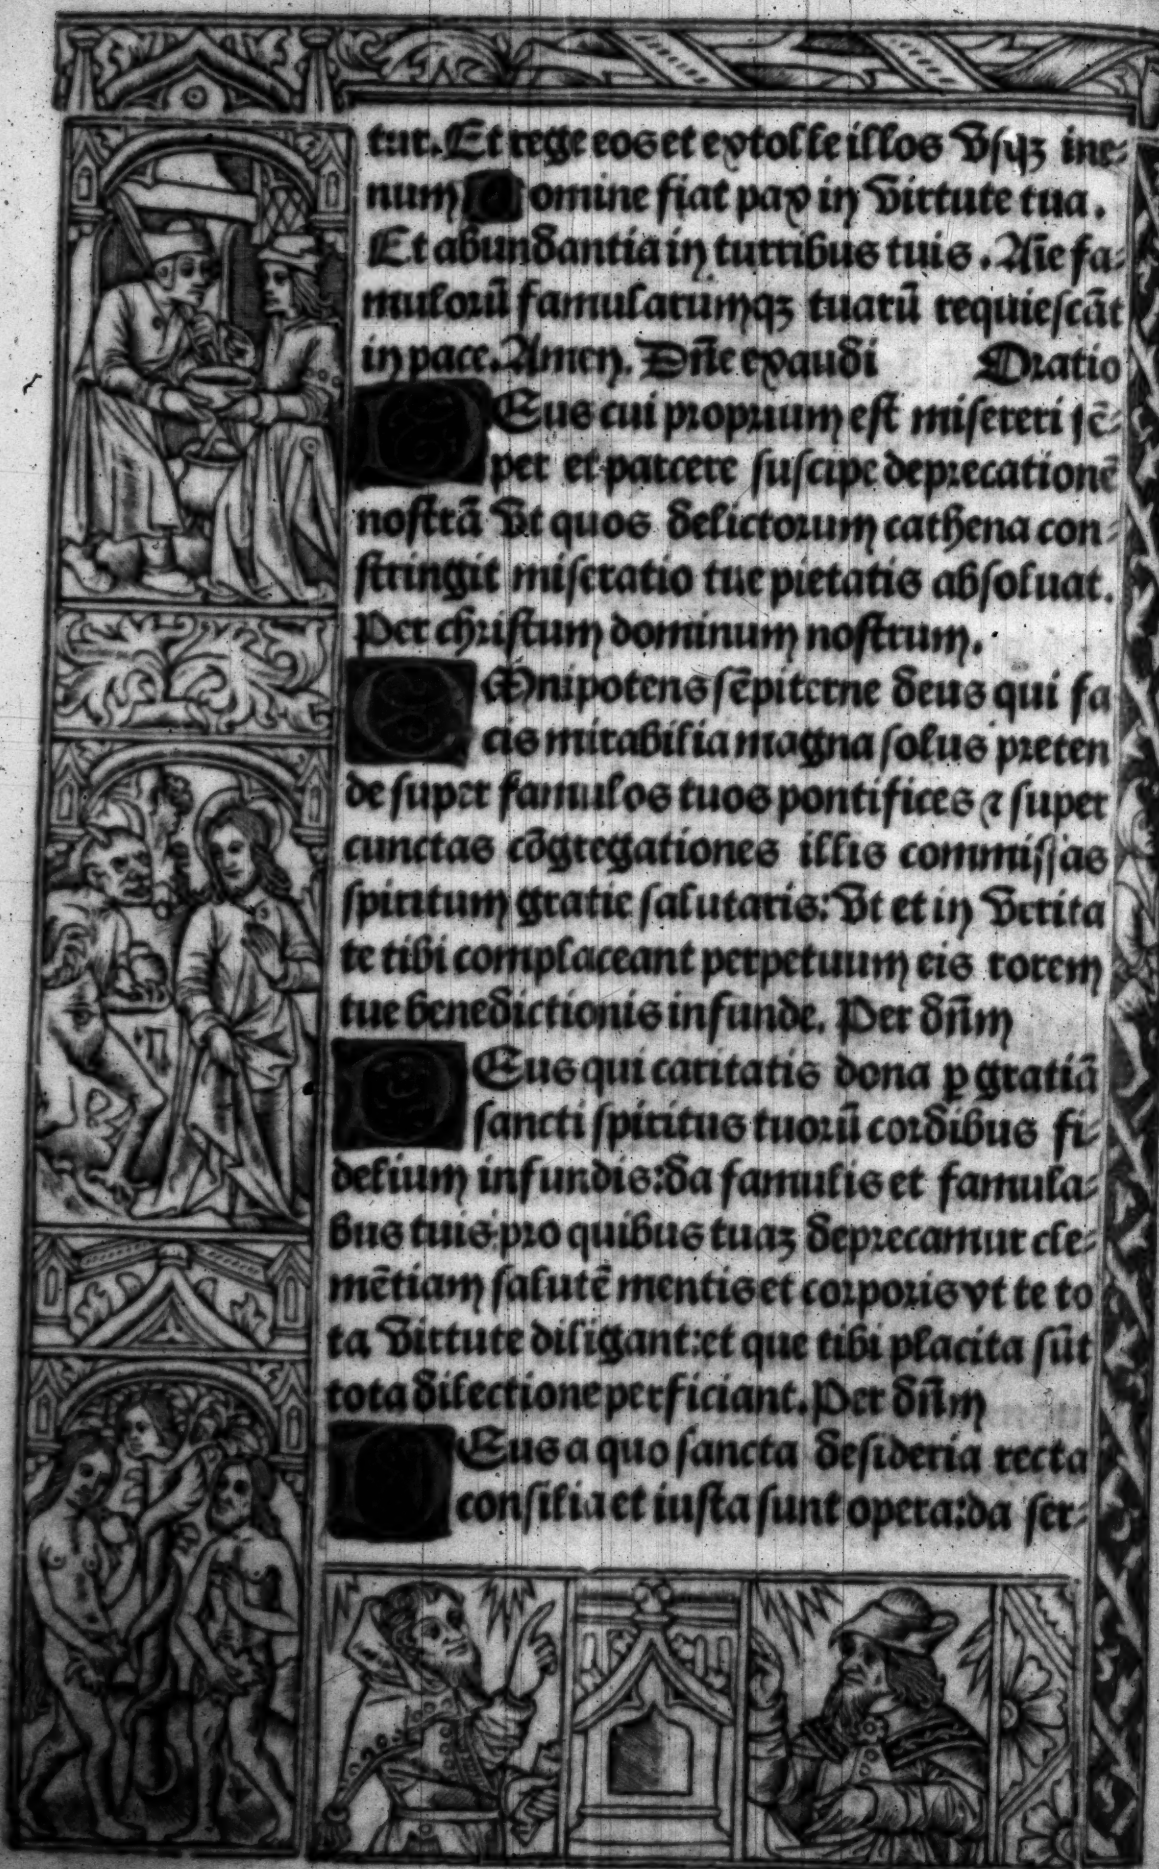 tur. Et rege eos et extolle illos Vsqꝫ ine-
num Domine fiat pax in Virtute tua.
Et abundantia in turribus tuis. Aīe fa-
mulorū famularumqꝫ tuarū requiescāt
in pace. Amen. Dn̄e exaudi Oratio
DEus cui proprium est misereri sē-
per et parcere suscipe deprecationē
nostrā Vt quos delictorum cathena con-
stringit miseratio tue pietatis absoluat.
Per christum dominum nostrum.
OMnipotens sēpiterne deus qui fa
cis mirabilia magna solus preten
de super famulos tuos pontifices ⁊ super
cunctas cōgregationes illis commissas
spiritum gratie salutaris: Vt et in Verita
te tibi complaceant perpetuum eis rorem
tue benedictionis infunde. Per dn̄m
DEus qui caritatis dona ꝑ gratiā
sancti spiritus tuorū cordibus fi-
delium infundis: da famulis et famula-
bus tuis pro quibus tuaꝫ deprecamur cle-
mētiam salutē mentis et corporis vt te to
ta Virtute diligant: et que tibi placita sūt
tota dilectione perficiant. Per dn̄m
DEus a quo sancta desideria recta
consilia et iusta sunt opera: da ser-